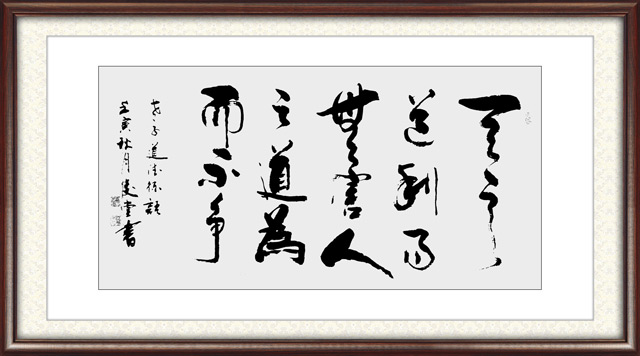 天之
道利而
無害人
之道為
而不争
老子道德經語
壬寅秋月堂書